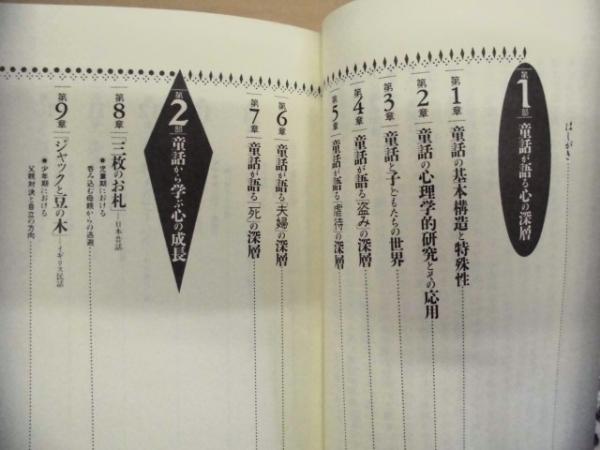 はしがき
第1部 童話が語る心の深層
第1章 童話の基本構造と特殊性
第2章 童話の心理学的研究とその応用
第3章 童話と子どもたちの世界
第4章 童話が語る「盗み」の深層
第5章 童話が語る「虐待」の深層
第6章 童話が語る「夫婦」の深層
第7章 童話が語る「死」の深層
第2部 童話から学ぶ心の成長
第8章 『三枚のお札』――日本昔話
●児童期における
呑み込む母親からの逃避
第9章 『ジャックと豆の木』――イギリス民話
●少年期における
父親対決と自立の方向